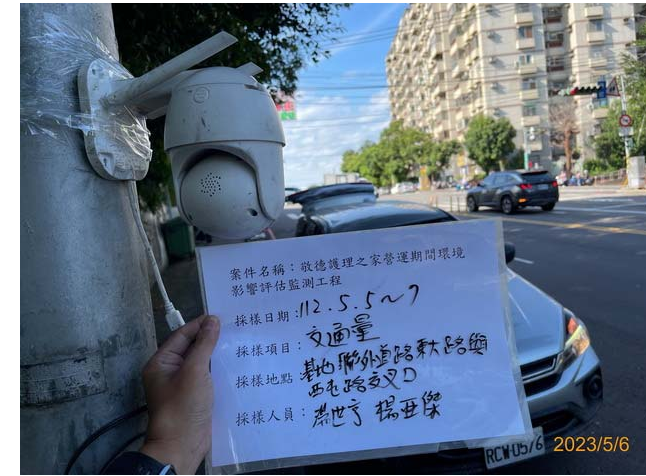 案件名稱：敬德護理之家營運期間環境
影響評估監測工程
採樣日期：112.5.5～7
採樣項目：交通量
採樣地點 基地聯外道路東大路與
西屯路交叉口
採樣人員：楊亞傑
2023/5/6